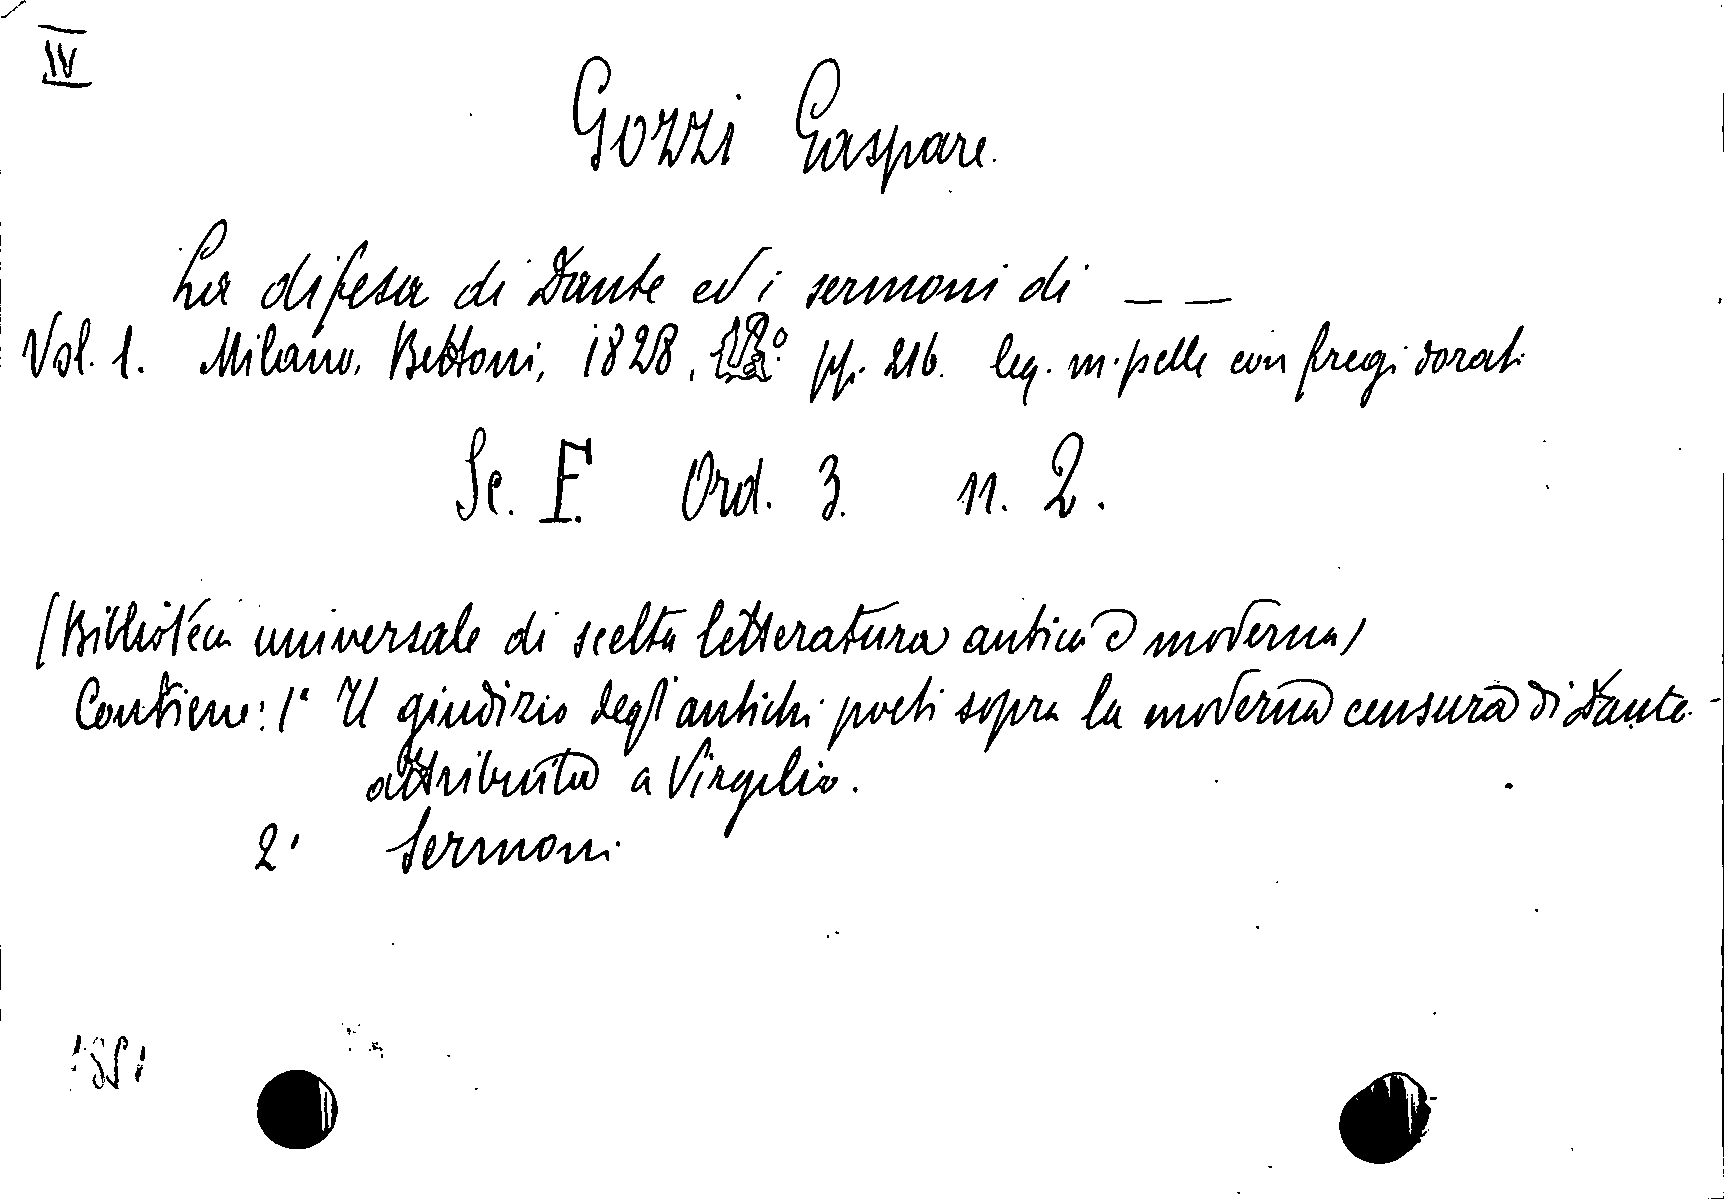 IV
Gozzi Gaspare.
La difesa di Dante ed i sermoni di — —
Vol. 1. Milano, Bettoni, 1828, pp. 216. leg. m. pelle con fregi dorati
Sc. F. Ord. 3. n. 2.
(Biblioteca universale di scelta letteratura antica e moderna)
Contiene: 1° Il giudizio degli antichi poeti sopra la moderna censura di Dante
attribuita a Virgilio.
2° Sermoni